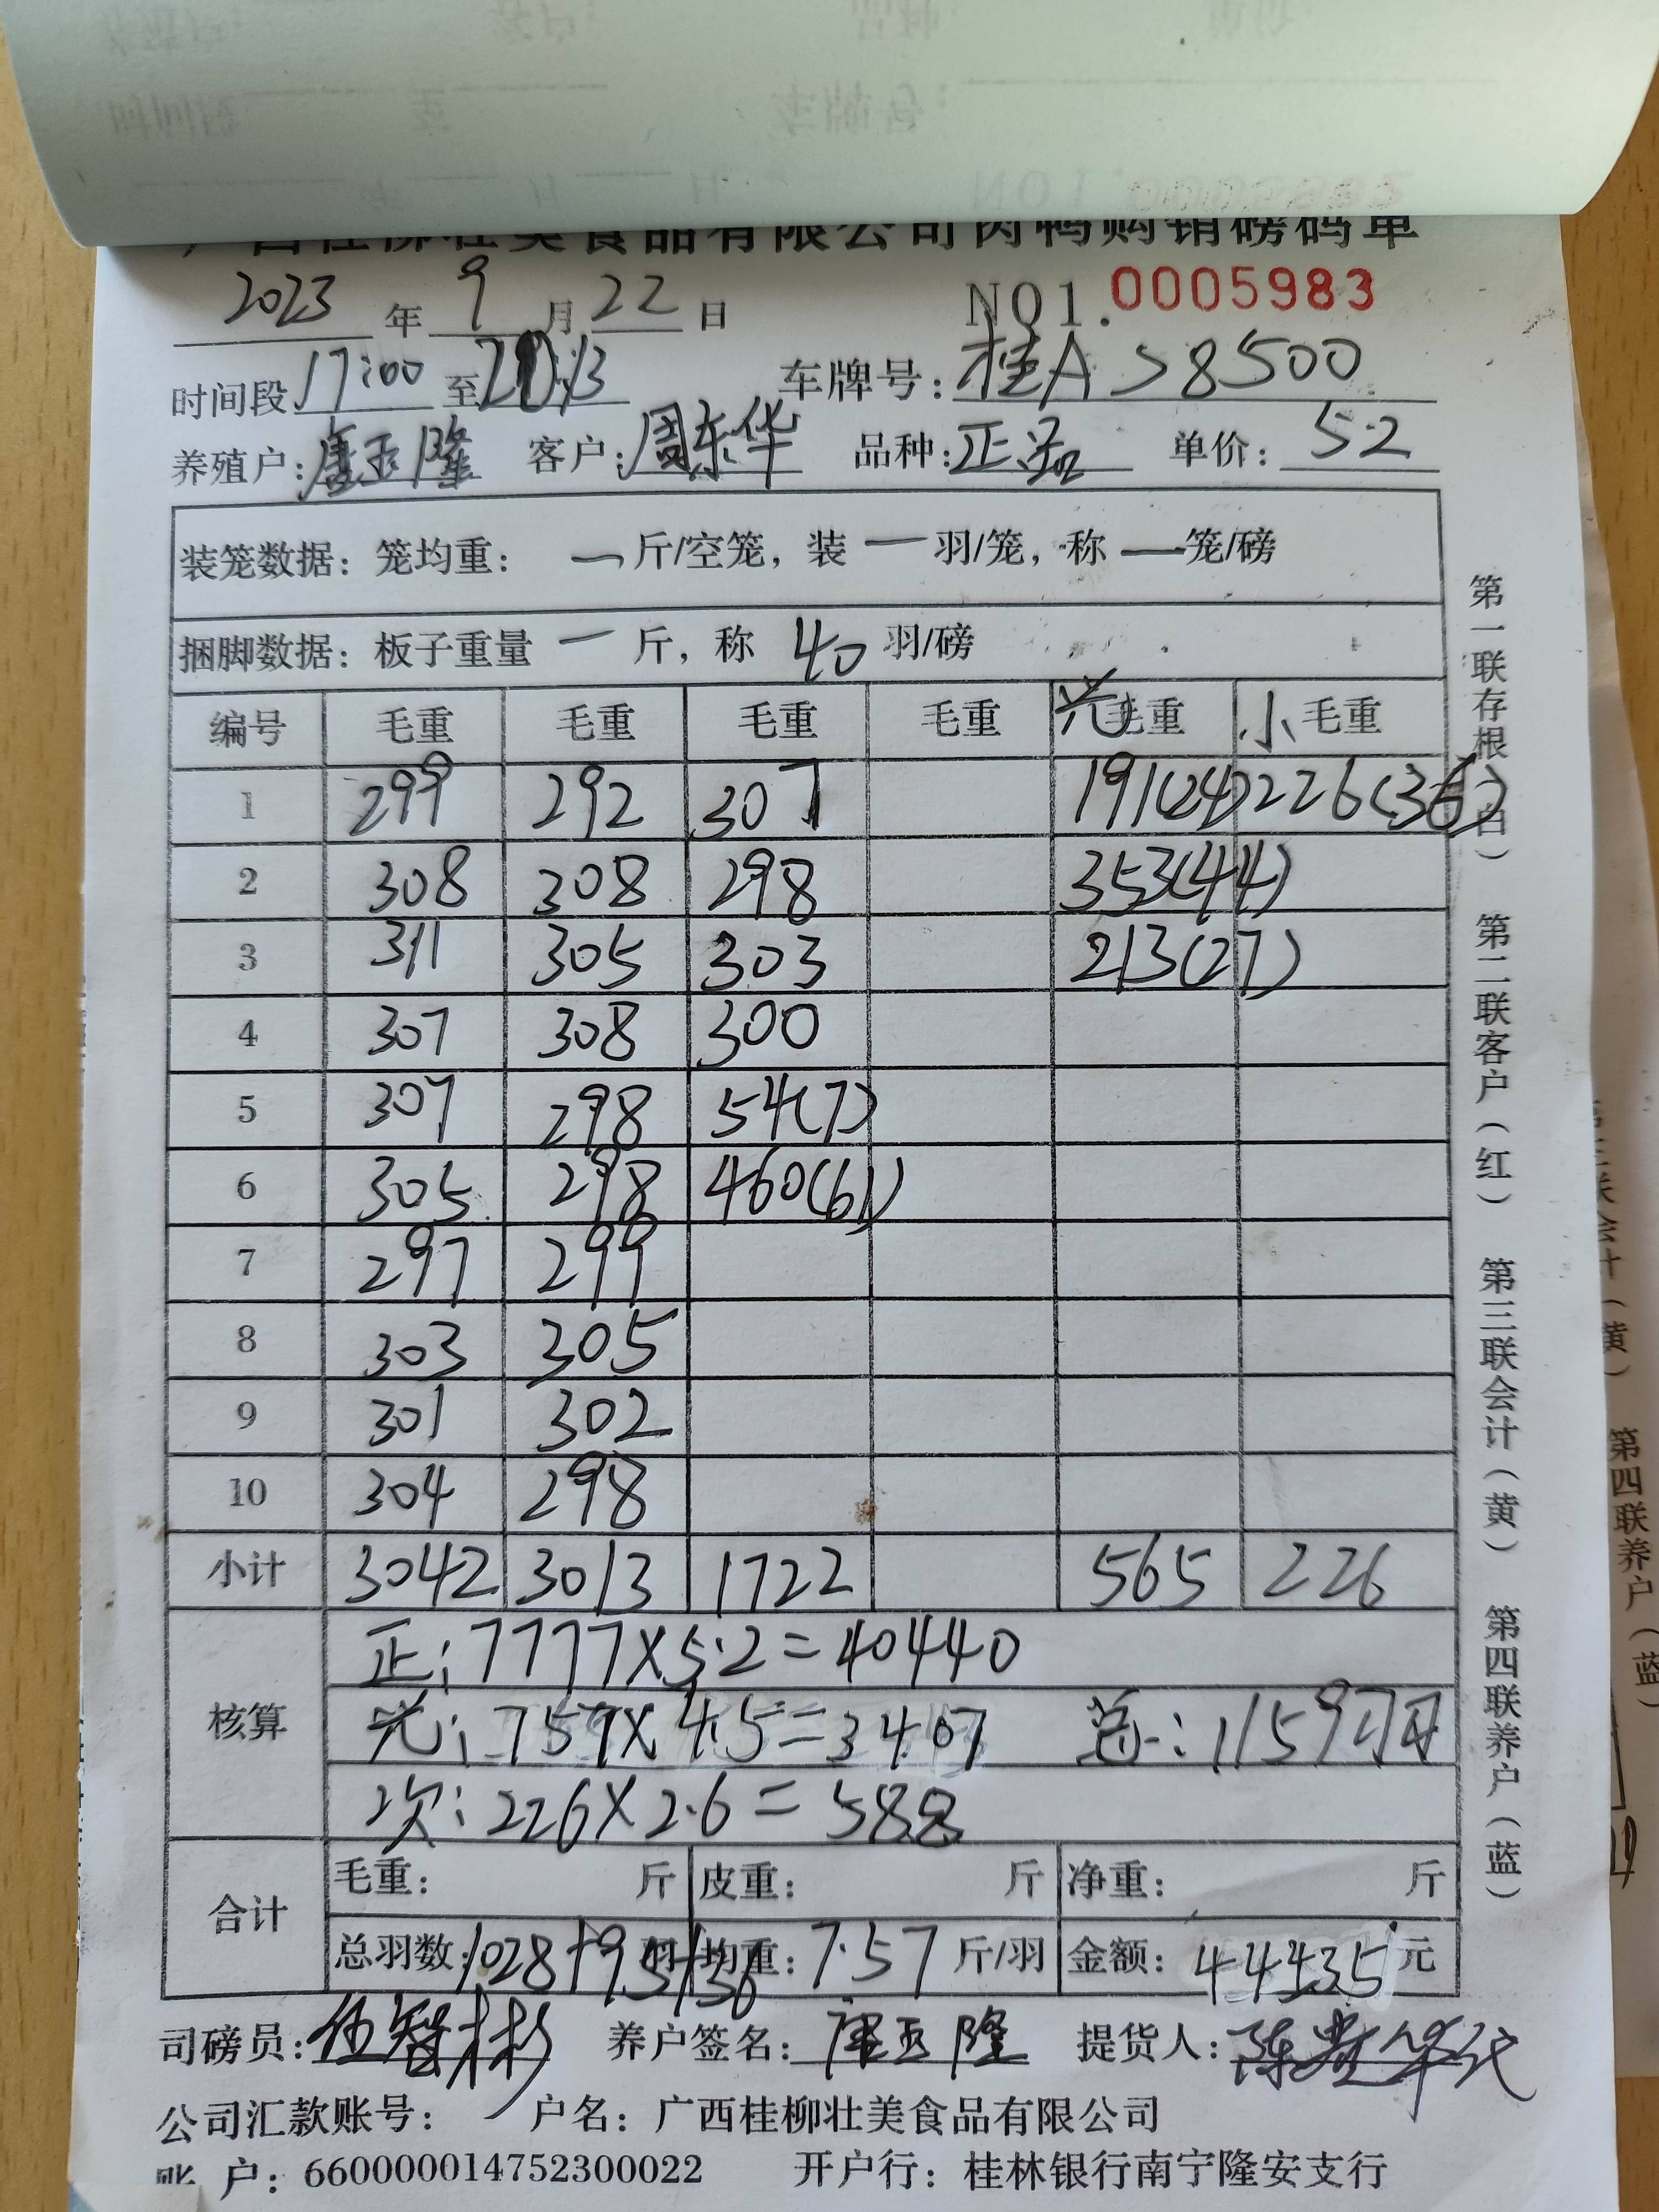 广西桂柳壮美食品有限公司肉鸭购销磅码单
2023年9月22日 NO1.0005983
时间段17:00至 车牌号:桂AS8500
养殖户:唐玉隆 客户:周东华 品种:正品 单价:5.2
装笼数据:笼均重:一斤/空笼,装一羽/笼,称一笼/磅
捆脚数据:板子重量一斤,称40羽/磅
编号 毛重 毛重 毛重 毛重 光毛重 小毛重
1 299 292 307 191(24) 226(36)
2 308 308 298 353(44)
3 311 305 303 213(27)
4 307 308 300
5 307 298 54(7)
6 305 298 460(61)
7 297 299
8 303 305
9 301 302
10 304 298
小计 3042 3013 1722 565 226
核算
正:7777×5.2=40440
光:757×4.5=3407 总:1159只
次:226×2.6=588
合计
毛重: 斤 皮重: 斤 净重: 斤
总羽数:1028+95+36羽 均重:7.57斤/羽 金额:44435元
司磅员:伍智彬 养户签名:唐玉隆 提货人:
公司汇款账号: 户名:广西桂柳壮美食品有限公司
账 户:660000014752300022 开户行:桂林银行南宁隆安支行
第一联存根(白) 第二联客户(红) 第三联会计(黄) 第四联养户(蓝)
第四联养户(蓝)